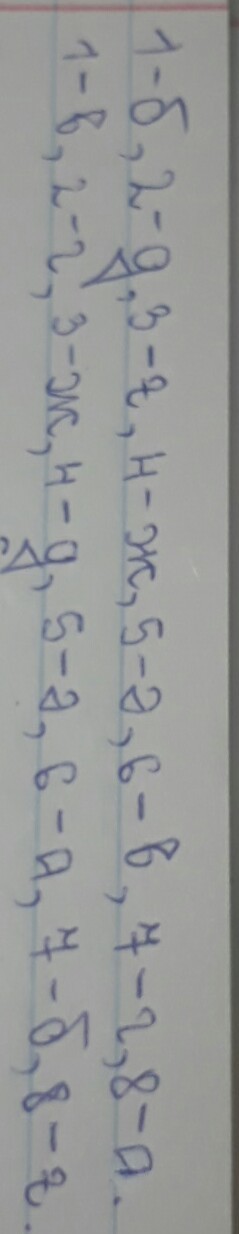 1-б, 2-д, 3-е, 4-ж, 5-з, 6-в, 7-г, 8-а.
1-в, 2-г, 3-ж, 4-д, 5-з, 6-а, 7-б, 8-е.